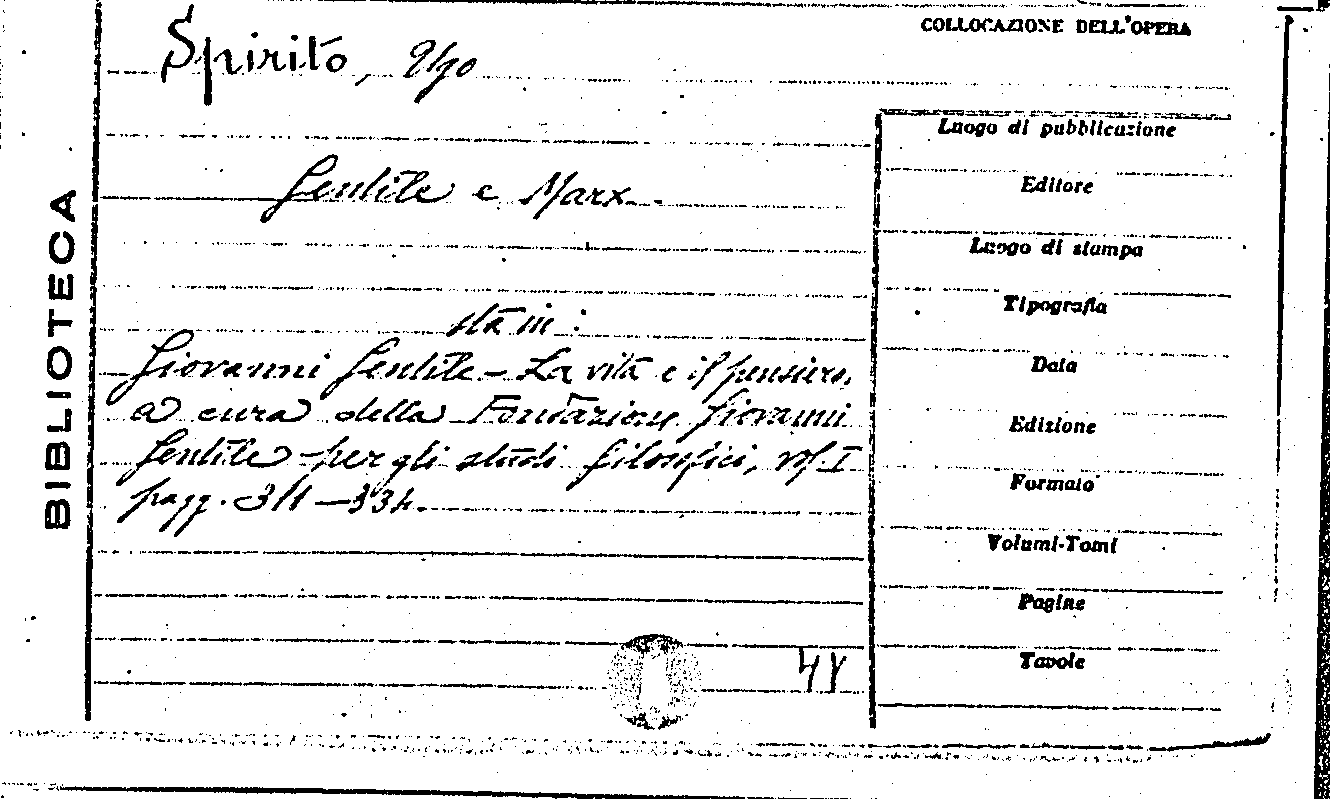 COLLOCAZIONE DELL'OPERA
Spirito, Ugo
Gentile e Marx.
sta in:
Giovanni Gentile - La vita e il pensiero,
a cura della Fondazione Giovanni
Gentile per gli studi filosofici, vol. I
pagg. 311-334.
BIBLIOTECA
Luogo di pubblicazione
Editore
Luogo di stampa
Tipografia
Data
Edizione
Formato
Volumi-Tomi
Pagine
Tavole